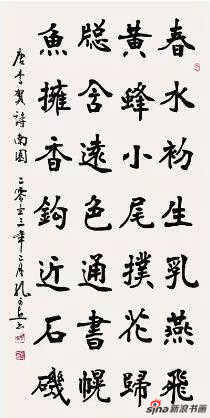 春水初生乳燕飛
黃蜂小尾撲花歸
牕含遠色通書幌
魚擁香鉤近石磯
唐李賀詩南園 二零一三年二月孔
sina新浪书画